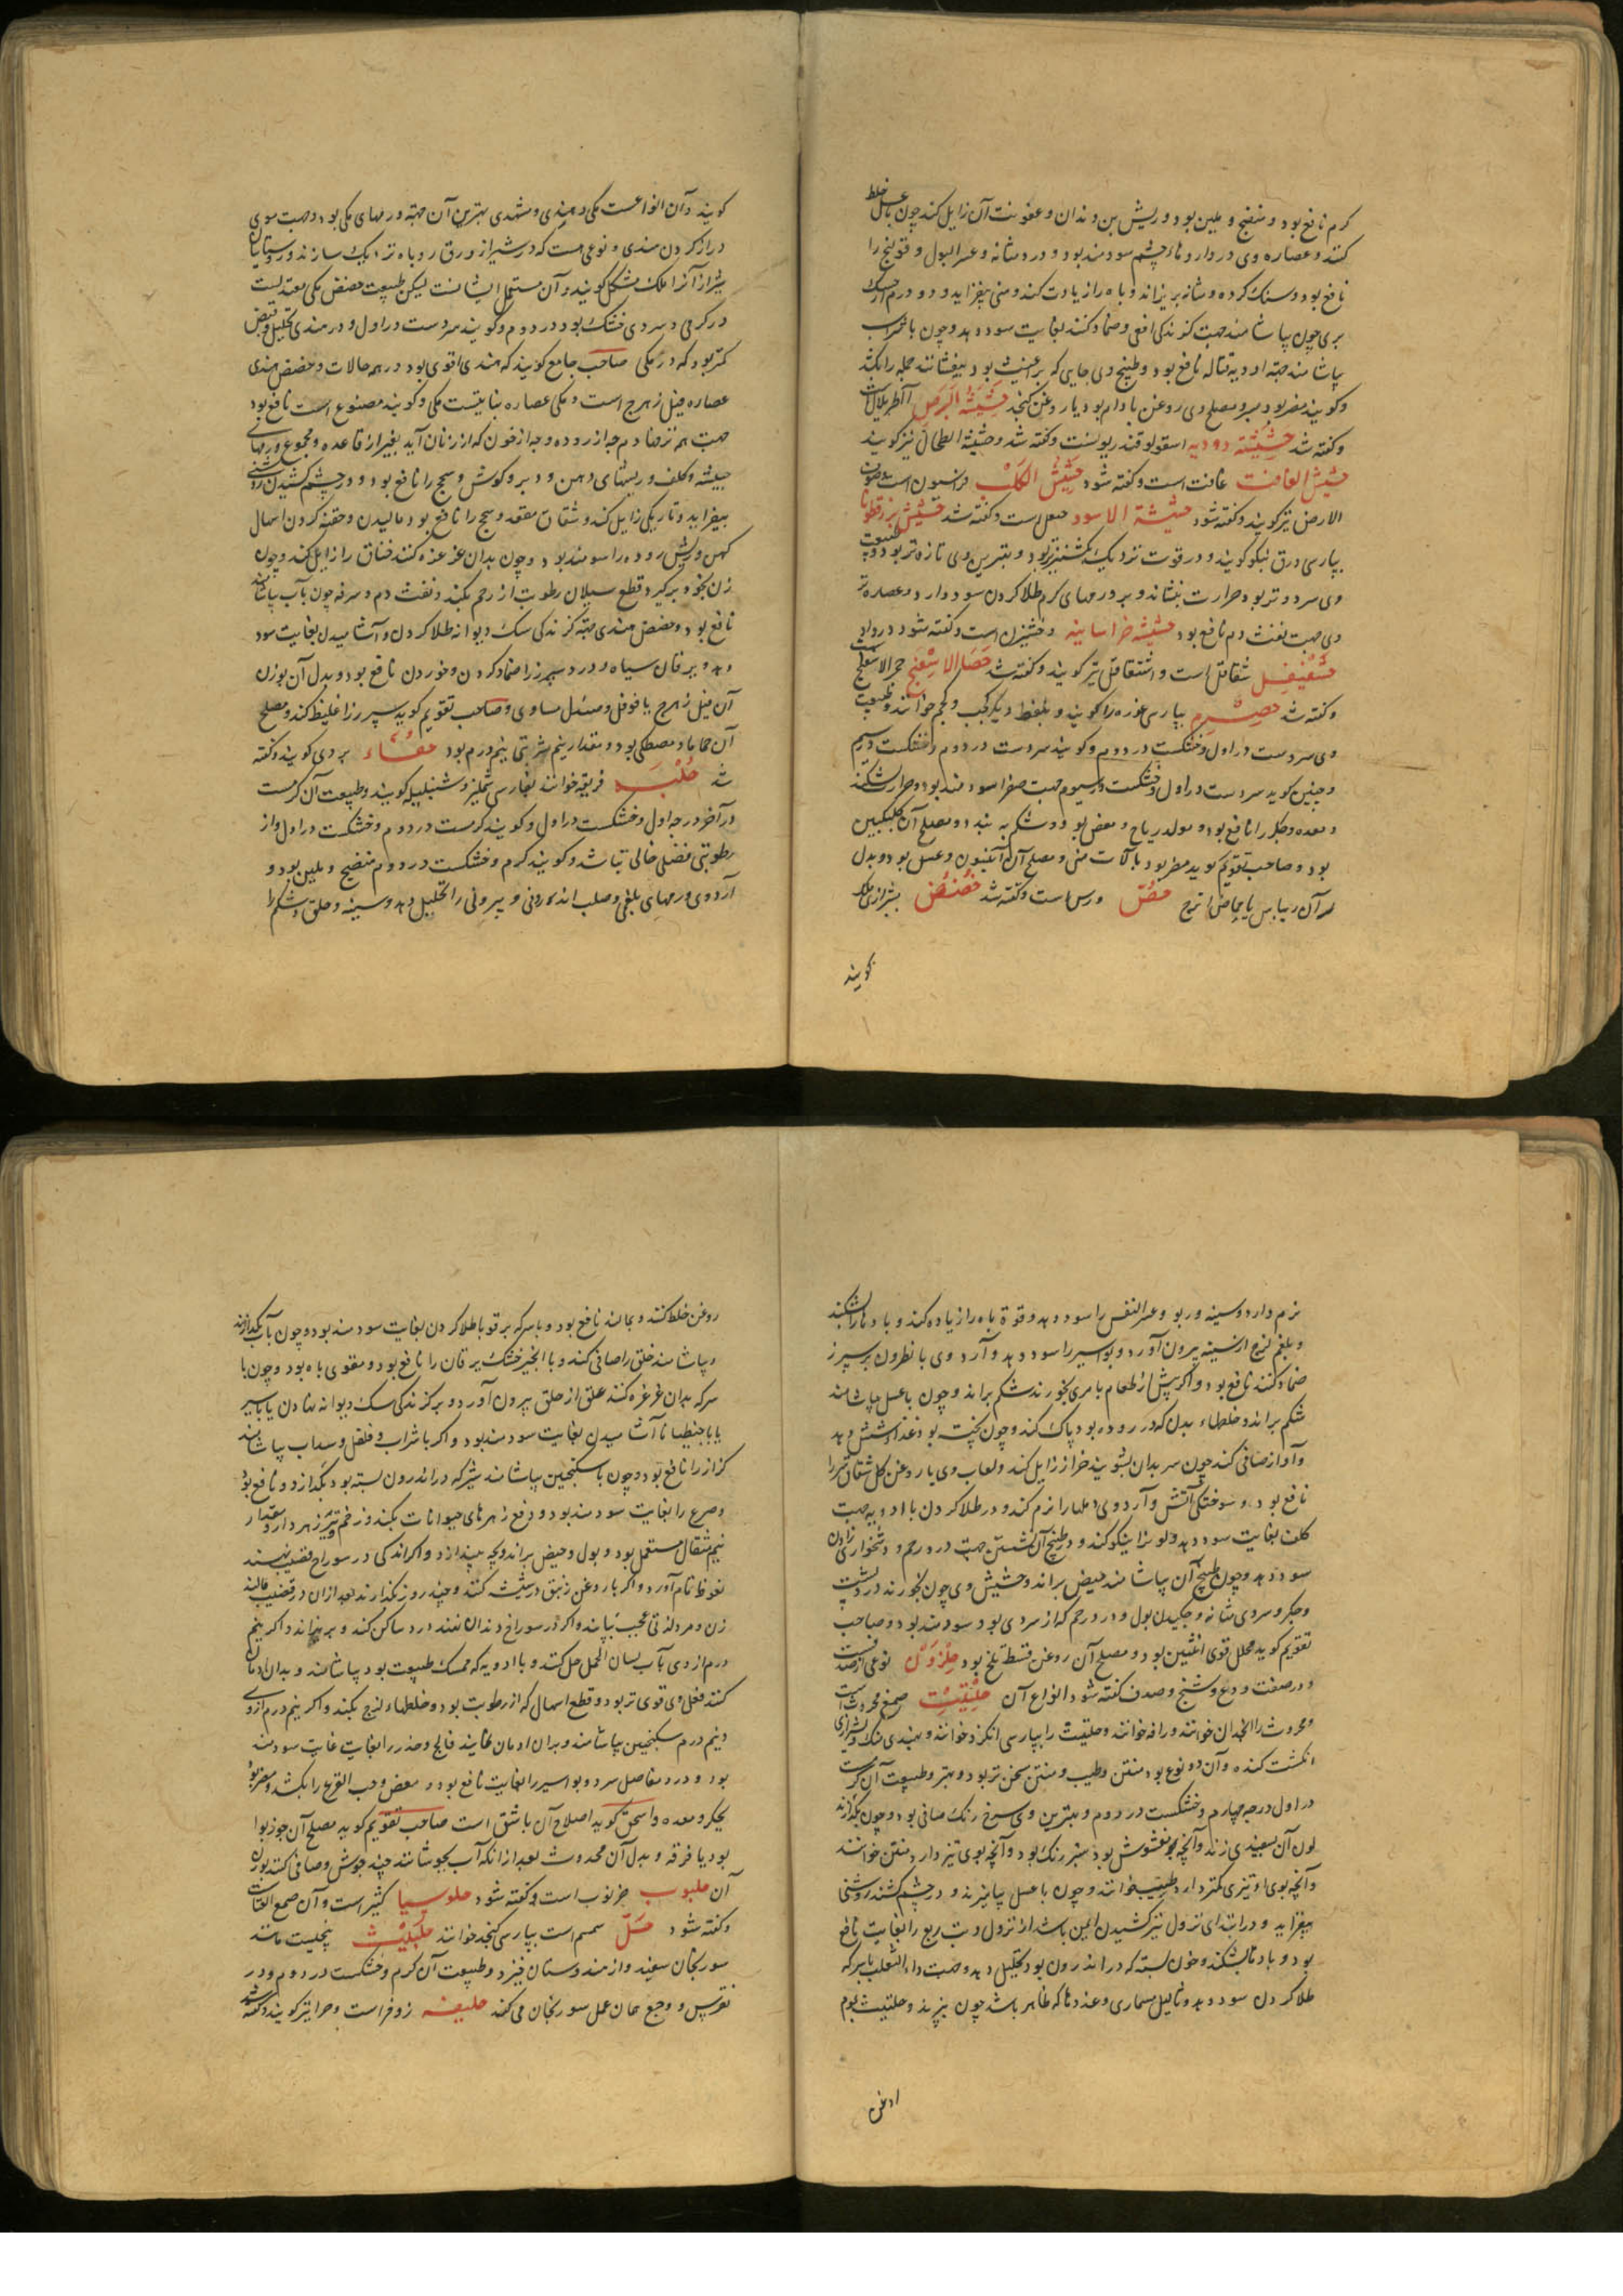 کرم نافع بود و منضج و ملین بود و ریش بن دندان و عفونت آن زایل کند چون با عسل خلط
کنند و عصاره وی در داروهاء چشم سودمند بود و درد مثانه و عسر البول و قولنج را
نافع بود و سنک کرده و مثانه بریزاند و باه را زیادت کند و منی بیفزاید و دو درم از حسک
بری چون بیاشامند جهت کزندکی افعی و ضماد کنند بغایت سود دهد و چون با شراب
بیاشامند جهة ادویه قتاله نافع بود و طبیخ وی جایی که براغیث بود بیفشانند جمله را بکشد
و کویند مضر بود بسر و مصلح وی روغن بادام بود یا روغن کنجد حشیشة البرص آطریلال است
و کفته شد حشیشة دودیه اسقولوقندریونست و کفته شد و حشیشة الطحال نیز کویند
حشیش الغافت غافت است و کفته شود حشیش الکلب فراسیون است و صوف
الارض نیز کویند و کفته شود حشیشة الاسود حیعل است و کفته شد حشیش بزرقطونا
بپارسی ورق بنکو کویند و در قوت نزدیک بکشنیز تر بود و بهترین وی تازه تر بود و طبیعت
وی سرد و تر بود حرارت بنشاند و بر ورمهای کرم طلا کردن سود دارد و عصاره تر
وی جهت نفث دم نافع بود حشیشه خراسانیه وخشیزق است و کفته شود در واو
حشغیفل شقاقل است و اشقاقل نیز کویند و کفته شد حصاالاسفنج حجر الاسفنج است
و کفته شد حصرم بپارسی غوره را کویند و بلفظ دیکر کحب و کجم خوانند و طبیعت
وی سردست در اول و خشکست در دوم و کویند سردست در دوم و خشکست در سیم
و جنین کوید سردست در اول و خشکست در سیوم جهت صفرا سودمند بود و حرارت بشکند
و معده و جکر را نافع بود و مولد ریاح و مغص بود و شکم به بندد و مصلح آن کلنکبین
بود و صاحب تقویم کوید مضر بود بآلات منی و مصلح آن انیسون و عسل بود و بدل
آن ریباس یا حماض اترج حص ورس است و کفته شد حضض بشیرازی ملک
کویند
کویند و آن انواعست مکی و هندی و مشهدی بهترین آن جهة ورمهای مکی بود و جهت موی
دراز کردن هندی و نوعی هست که در شیراز از ورق روباه تربک سازند و روستایان
شیراز آنرا ملک مشکل کویند و آن مستعمل ایشانست لیکن طبیعت حضض مکی معتدلست
در کرمی و سردی خشک بود در دوم و کویند سردست در اول و در هندی تحلیل و قبض
کمتر بود که در مکی صاحب جامع کویند که هندی اقوی بود در همه حالات و حضض هندی
عصاره فیل زهرج است و مکی عصاره نباتیست مکی و کویند مصنوع است نافع بود
جهت هم نزف دم چه از روده و چه از خون که از زنان آید بغیر از قاعده و مجموع ورمهای
خبیثه و کلف و ریشهای دهن و دبر و کوش و سحج را نافع بود و در چشم کشیدن روشنی
بیفزاید و تاریکی زایل کند و شقاق مقعد و سحج را نافع بود مالیدن و حقنه کردن اسهال
کهن و ریش روده را سودمند بود و چون بدان غرغره کنند خناق را زایل کند و چون
زن بخود برکیرد قطع سیلان رطوبت از رحم بکند و نفث دم و سرفه چون بآب بیاشامند
نافع بود و حضض هندی جهة کزندکی سک دیوانه طلا کردن و آشامیدن بغایت سود
دهد و یرقان سیاه و درد سپرز را ضماد کردن و خوردن نافع بود و بدل آن بوزن
آن فیل زهرج یا فوفل و صندل مساوی و صاحب تقویم کوید سپرز را غلیظ کند و مصلح
آن حماما و مصطکی بود و مقدار نیم شربتی نیم درم بود حفاء بردی کویند و کفته
شد حلبه فریقه خوانند بفارسی شملیز و شنبلیله کویند و طبیعت آن کرمست
در آخر درجه اول و خشکست در اول و کویند کرمست در دوم و خشکست در اول و از
رطوبتی فضلی خالی نباشد و کویند کرم و خشکست در دوم منضج و ملین بود و
آرد وی ورمهای بلغمی و صلب اندرونی و بیرونی را تحلیل دهد و سینه و حلق و شکم را
نرم دارد و سینه و ربو و عسر النفس را سود دهد و قوة باه را زیاده کند و بادها را بشکند
و بلغم لزج از سینه بیرون آورد و بواسیر را سود دهد و آرد وی با نطرون بر سپرز
ضماد کنند نافع بود و اکر پیش از طعام با مری بخورند شکم براند و چون با عسل بیاشامند
شکم براند و خلطهاء بدل که در روده بود پاک کند و چون پخته بود غذا و شش دهد
و آواز صافی کند چون سر بدان بشویند خزاز زایل کند و لعاب وی با روغن کل شقاق سر را
نافع بود و سوختکی آتش و آرد وی دملها را نرم کند و در طلا کردن با ادویه جهت
کلف بغایت سود دهد و لون را نیکو کند و در طبیخ آن نشستن جهت درد رحم و دشخواری زادن
سود دهد و چون طبیخ آن بیاشامند حیض براند و حشیش وی چون بخورند درد پشت
و جکر و سردی مثانه و چکیدن بول و درد رحم که از سردی بود سودمند بود و صاحب
تقویم کوید محلل قوی انثیین بود و مصلح آن روغن قسط تلخ بود حلزون نوعی از صدفست
و در صفت ودع و شنج و صدف کفته شود انواع آن حلتیت صمغ محروثست
و محروث را انجدان خوانند و رافه خوانند و حلتیت را بپارسی انکزد خوانند و بهندی هنک و بشیرازی
انکشت کنده و آن دو نوع بود منتن و طیب و منتن سخن تر بود و بهتر و طبیعت آن کرمست
در اول درجه چهارم و خشکست در دوم و بهترین وی سرخ رنک صافی بود و چون بکدازند
لون آن بسفیدی زند و آنچه مغشوش بود سبز رنک بود و آنچه بوی تیز دارد منتن خوانند
و آنچه بوی او تیزی کمتر دارد طیب خوانند و چون با عسل بیامیزند و در چشم کشند روشنی
بیفزاید و در ابتدای نزول نیز کشیدن ایمن باشد از نزول و تب ربع را بغایت نافع
بود و بادها بشکند و خون بسته که در اندرون بود تحلیل دهد و جهت داء الثعلب با سرکه
طلا کردن سود دهد و ثالیل مسماری و غددها که ظاهر باشد چون بپزند و حلتیت بموم
روغن
روغن خلط کنند و بمالند نافع بود و با سرکه بر قوبا طلا کردن بغایت سودمند بود و چون بآب بکدازند
و بیاشامند حلق را صافی کند و با انجیر خشک یرقان را نافع بود و مقوی باه بود و چون با
سرکه بدان غرغره کنند علق از حلق بیرون آورد و بر کزندکی سک دیوانه نهادن با سیر
یا با جنطیانا آشامیدن بغایت سودمند بود و اکر با شراب و فلفل و سداب بیاشامند
کزاز را نافع بود و چون با سکنجبین بیاشامند شیر که در اندرون بسته بود بکدازد و نافع بود
و صرع را بغایت سودمند بود و دفع زهرهای حیوانات بکند و زخم تیر زهر دار و مقدار
نیم مثقال مستعمل بود و بول و حیض براند و بچه بیندازد و اکر اندکی در سوراخ قضیب نهند
نعوظ تمام آورد و اکر با روغن زنبق در شیشه کنند و چند روز بکذارند بعد از آن در قضیب مالند
زن و مرد لذتی عجیب بیابند و اکر در سوراخ دندان نهند درد ساکن کند و بریزاند و اکر نیم
درم از وی بآب لسان الحمل حل کنند و با ادویه که ممسک طبیعت بود بیاشامند و بدان ادمان
کنند فعل وی قوی تر بود و قطع اسهال که از رطوبت بود و خلطهاء لزج بکند و اکر نیم درم از وی
و نیم درم سکنجبین بیاشامند و بدان ادمان نمایند فالج و خدر را بغایت غایت سودمند
بود و درد مفاصل سرد و بواسیر را بغایت نافع بود و مغص و حب القرع را بکشد و مضر بود
بجکر و معده و اسحق کوید اصلاح آن باشق است صاحب تقویم کوید مصلح آن جوز بوا
بود یا قرفه و بدل آن محروث بعد از آنکه آب بجوشانند چند جوش و صافی کنند بوزن
آن حلبوب خرنوب است و کفته شود حلوسیا کثیراست و آن صمغ القتاد است
و کفته شود حل سمسم است بپارسی کنجد خوانند حلبلیث بیخیست مانند
سورنجان سفید و از هندوستان خیزد و طبیعت آن کرم و خشکست در دوم و در
نقرس و وجع همان عمل سورنجان می کند حلیفه زوفراست و حزا نیز کویند و کفته شود